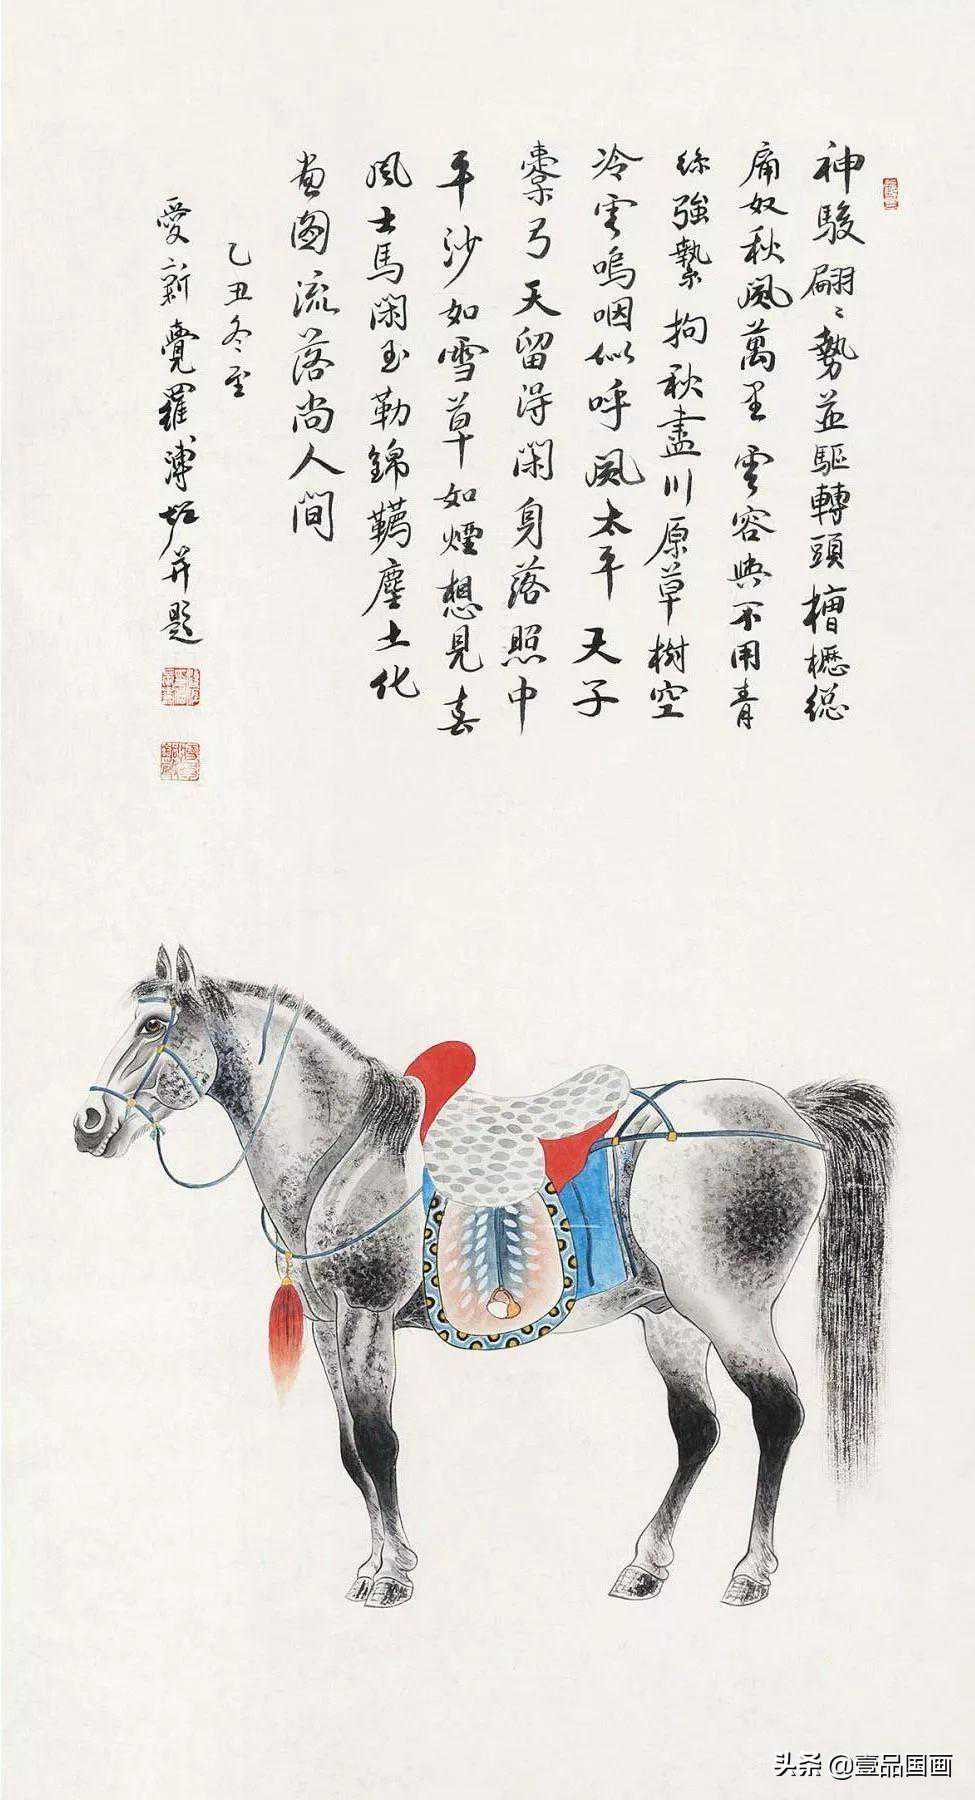 神駿翩〻勢並驅轉頭槽櫪總
庸奴秋風萬里雲容與不用青
絲強縶拘秋盡川原草樹空
冷雲嗚咽似呼風太平天子
櫜弓矢留得閑身落照中
平沙如雪草如煙想見春
風士馬閑玉勒錦韉塵土化
畫圖流落尚人間
乙丑冬至
愛新覺羅溥佐并題
头条 @壹品国画